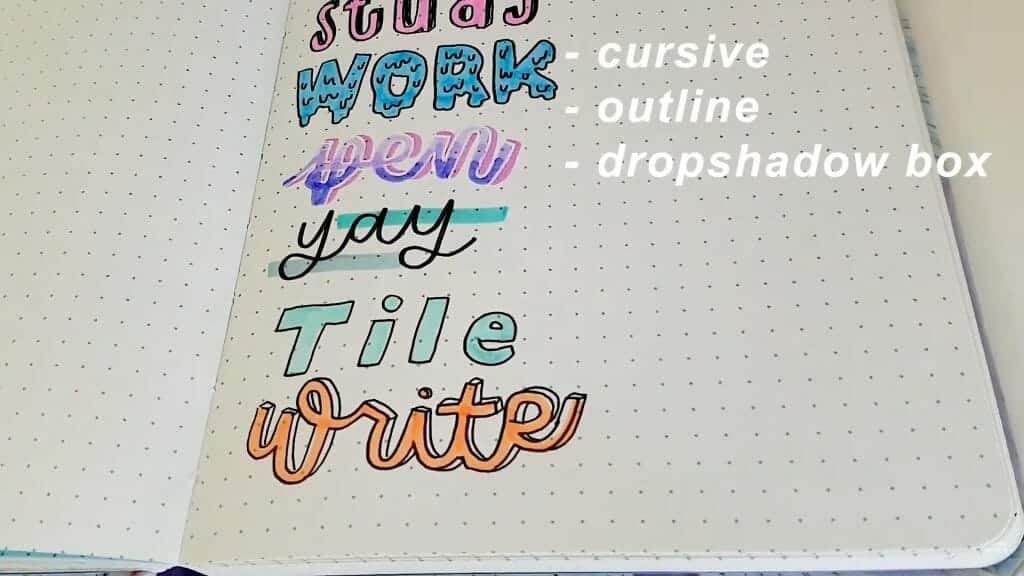 study
WORK
pen
yay
Tile
Write
- cursive
- outline
- dropshadow box